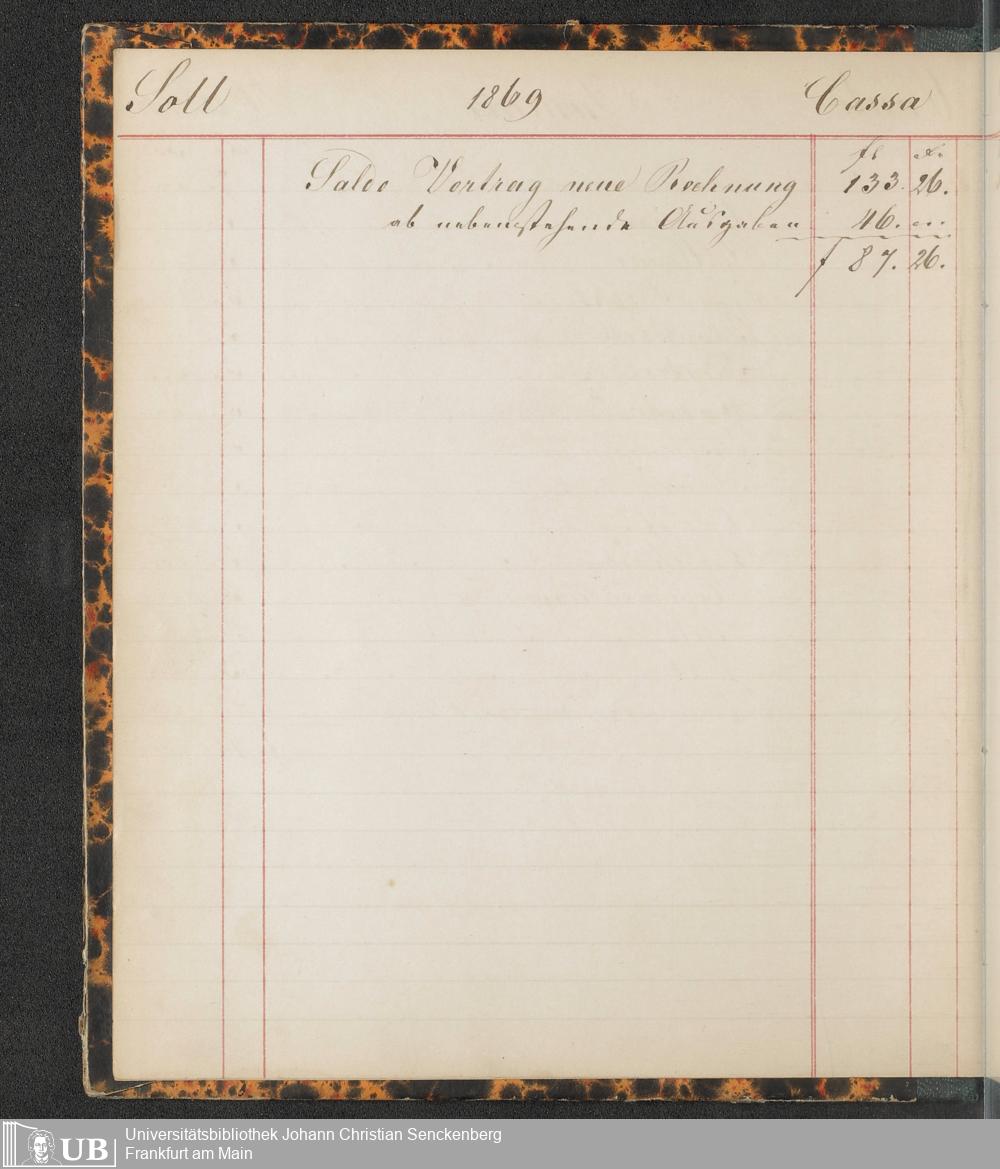 Soll 1869 Cassa
fl xr.
Saldo Vortrag neue Rechnung 133. 26.
ab nebenstehende Ausgaben 46. —
f 87. 26.
UB
Universitätsbibliothek Johann Christian Senckenberg
Frankfurt am Main